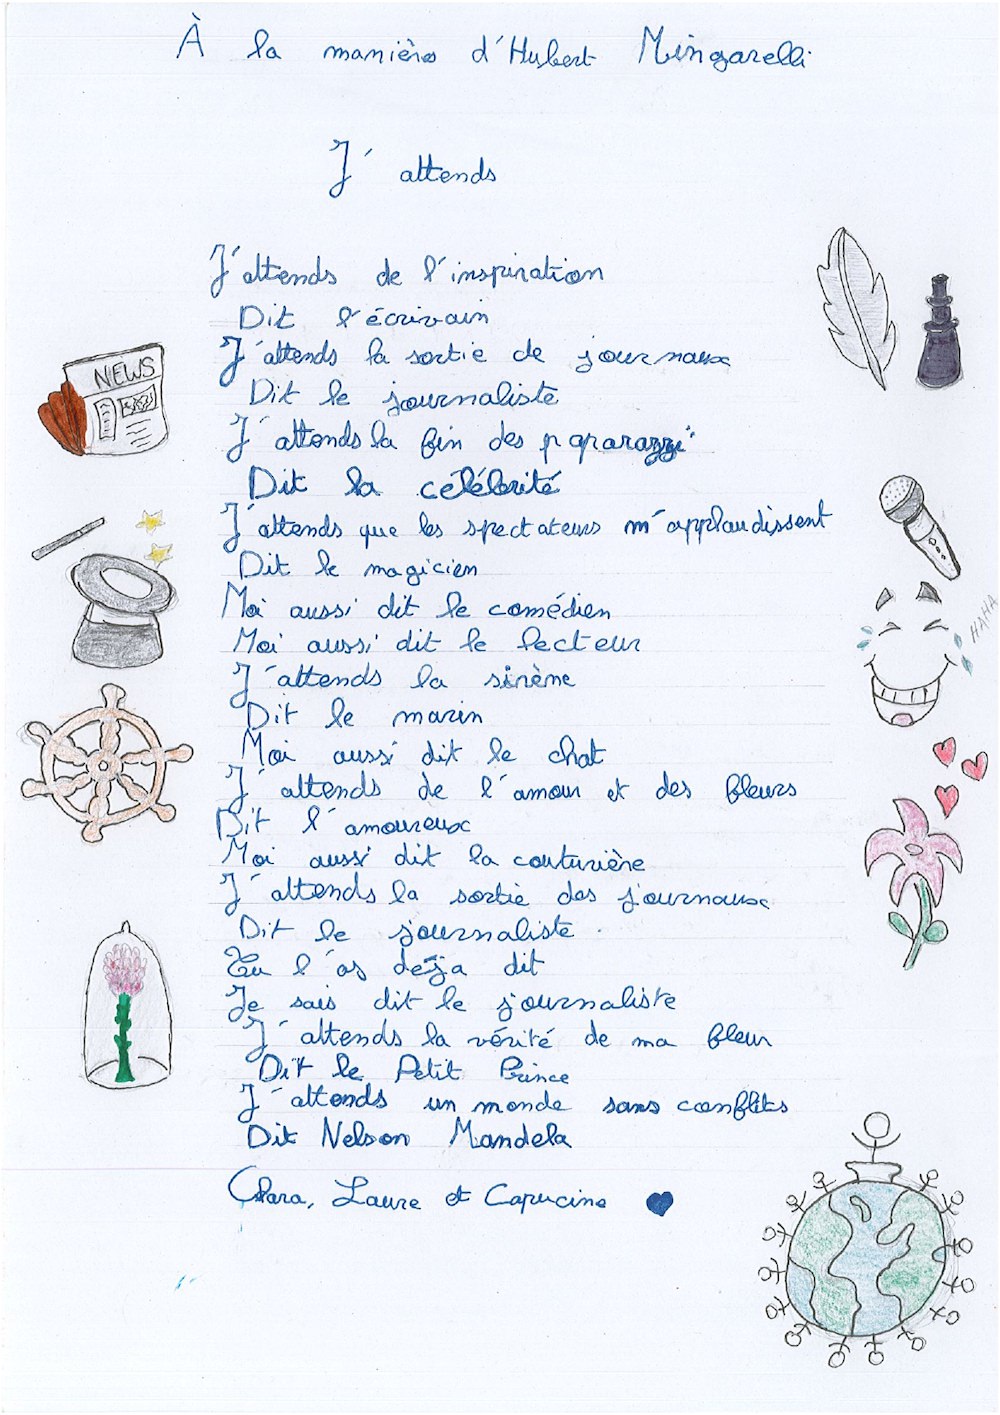 À la manière d'Hubert Mingarelli
J'attends
J'attends de l'inspiration
Dit l'écrivain
J'attends la sortie de journaux
Dit le journaliste
J'attends la fin des paparazzi
Dit la célébrité
J'attends que les spectateurs m'applaudissent
Dit le magicien
Moi aussi dit le comédien
Moi aussi dit le lecteur
J'attends la sirène
Dit le marin
Moi aussi dit le chat
J'attends de l'amour et des fleurs
Dit l'amoureux
Moi aussi dit la couturière
J'attends la sortie des journaux
Dit le journaliste
Tu l'as déja dit
Je sais dit le journaliste
J'attends la vérité de ma fleur
Dit le Petit Prince
J'attends un monde sans conflits
Dit Nelson Mandela
Clara, Laure et Capucine
NEWS
HAHA